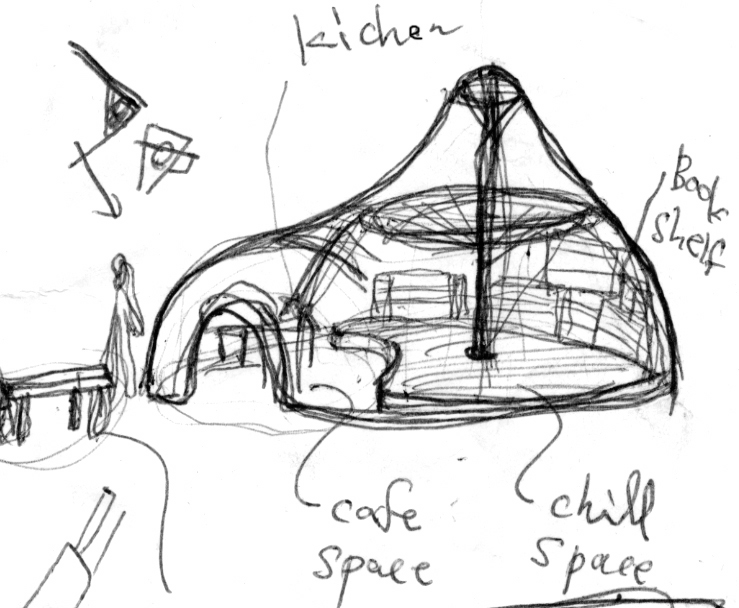 kichen
Book
shelf
cafe
space
chill
space